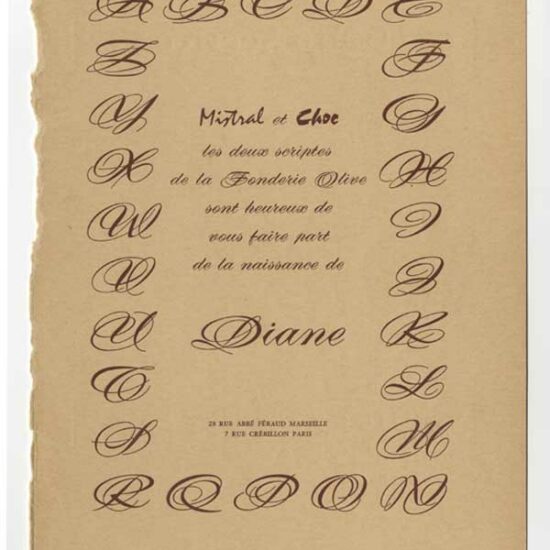 A B C D E
Z
Y
X
W
V
U
T
S
Mistral et Choc
les deux scriptes
de la Fonderie Olive
sont heureux de
vous faire part
de la naissance de
Diane
28 RUE ABBÉ FÉRAUD MARSEILLE
7 RUE CRÉBILLON PARIS
F
G
H
I
J
K
L
M
R Q P O N